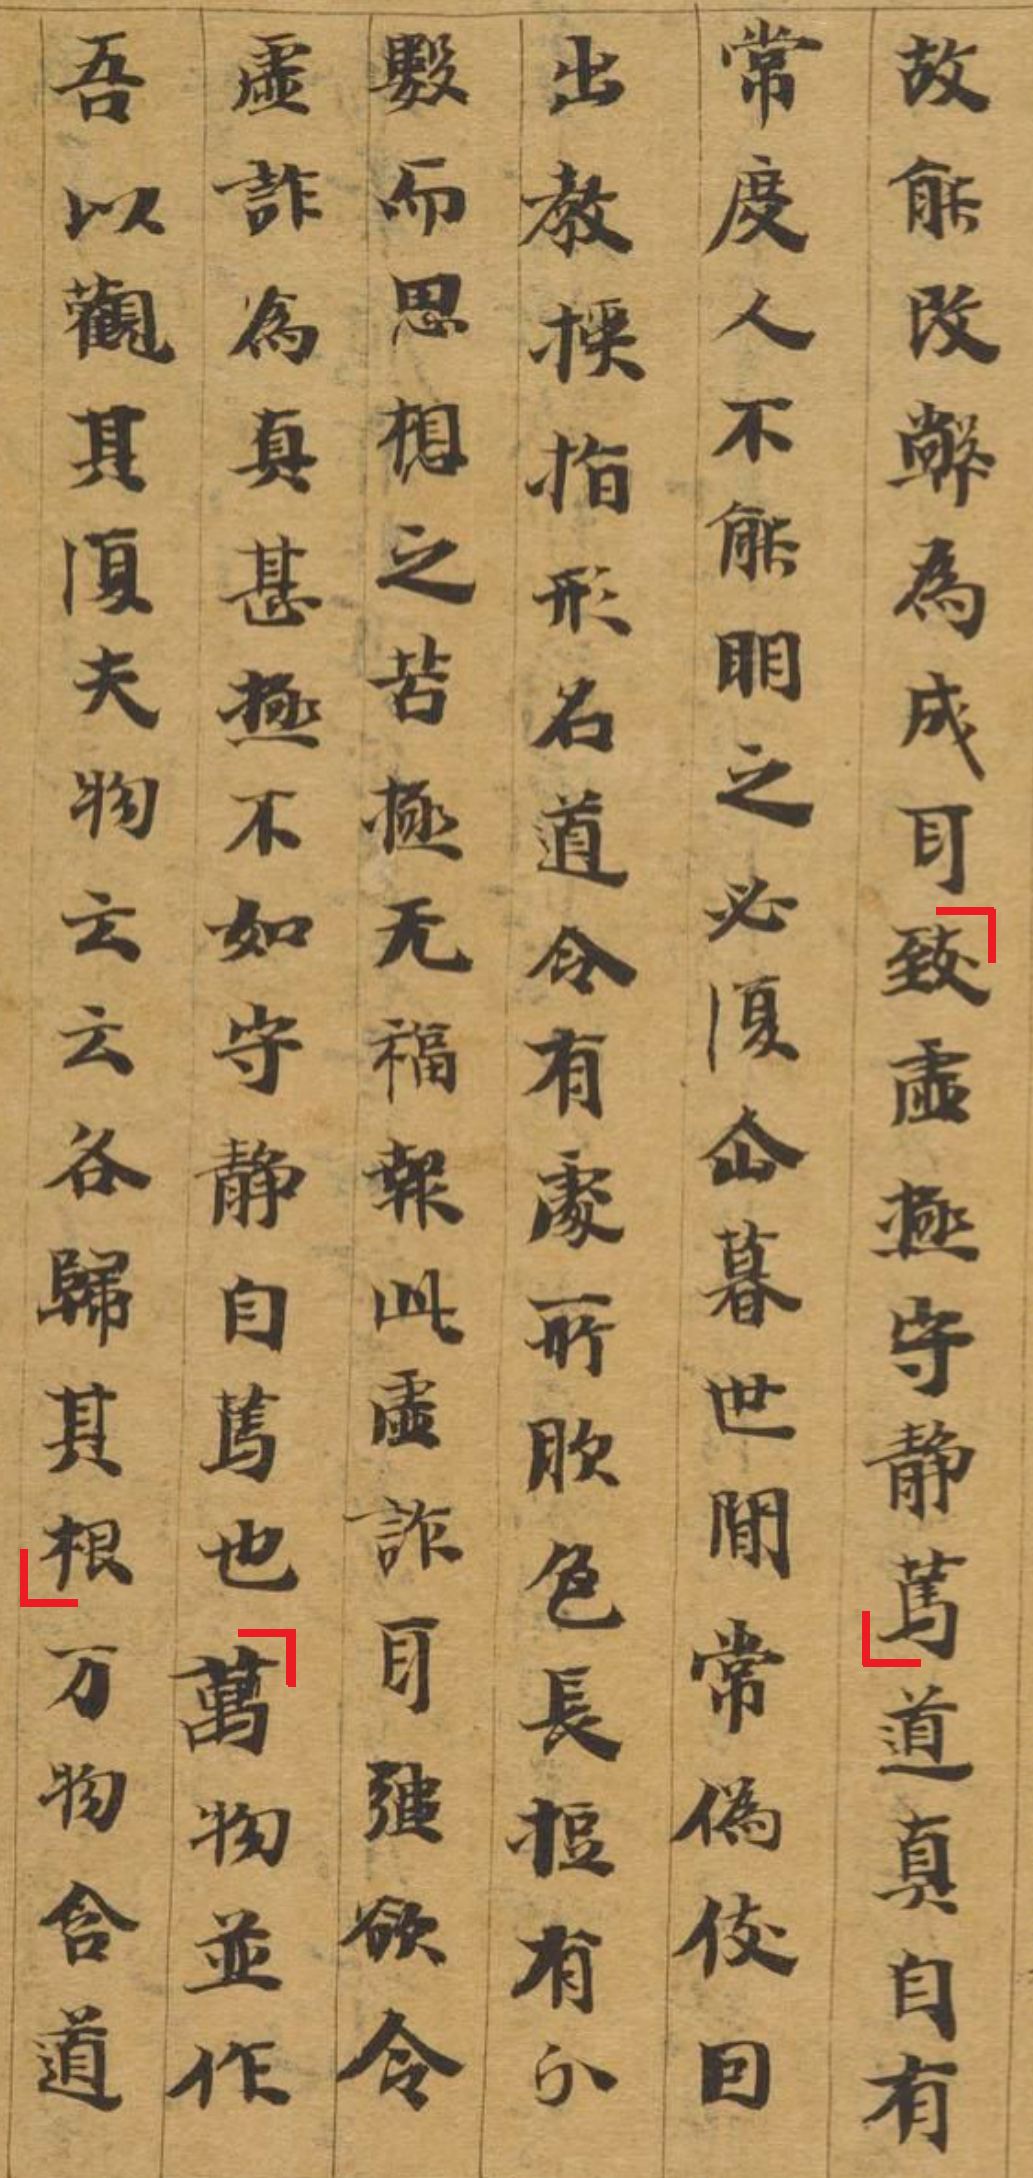 故能改弊為成耳致虛極守静篤道真自有
常度人不能明之必復企暮世間常偽伎因
出教授指形名道令有處所服色長短有分
數而思想之苦極无福報此虛詐耳強欲令
虛詐為真甚極不如守静自篤也萬物並作
吾以觀其復夫物云云各歸其根万物含道